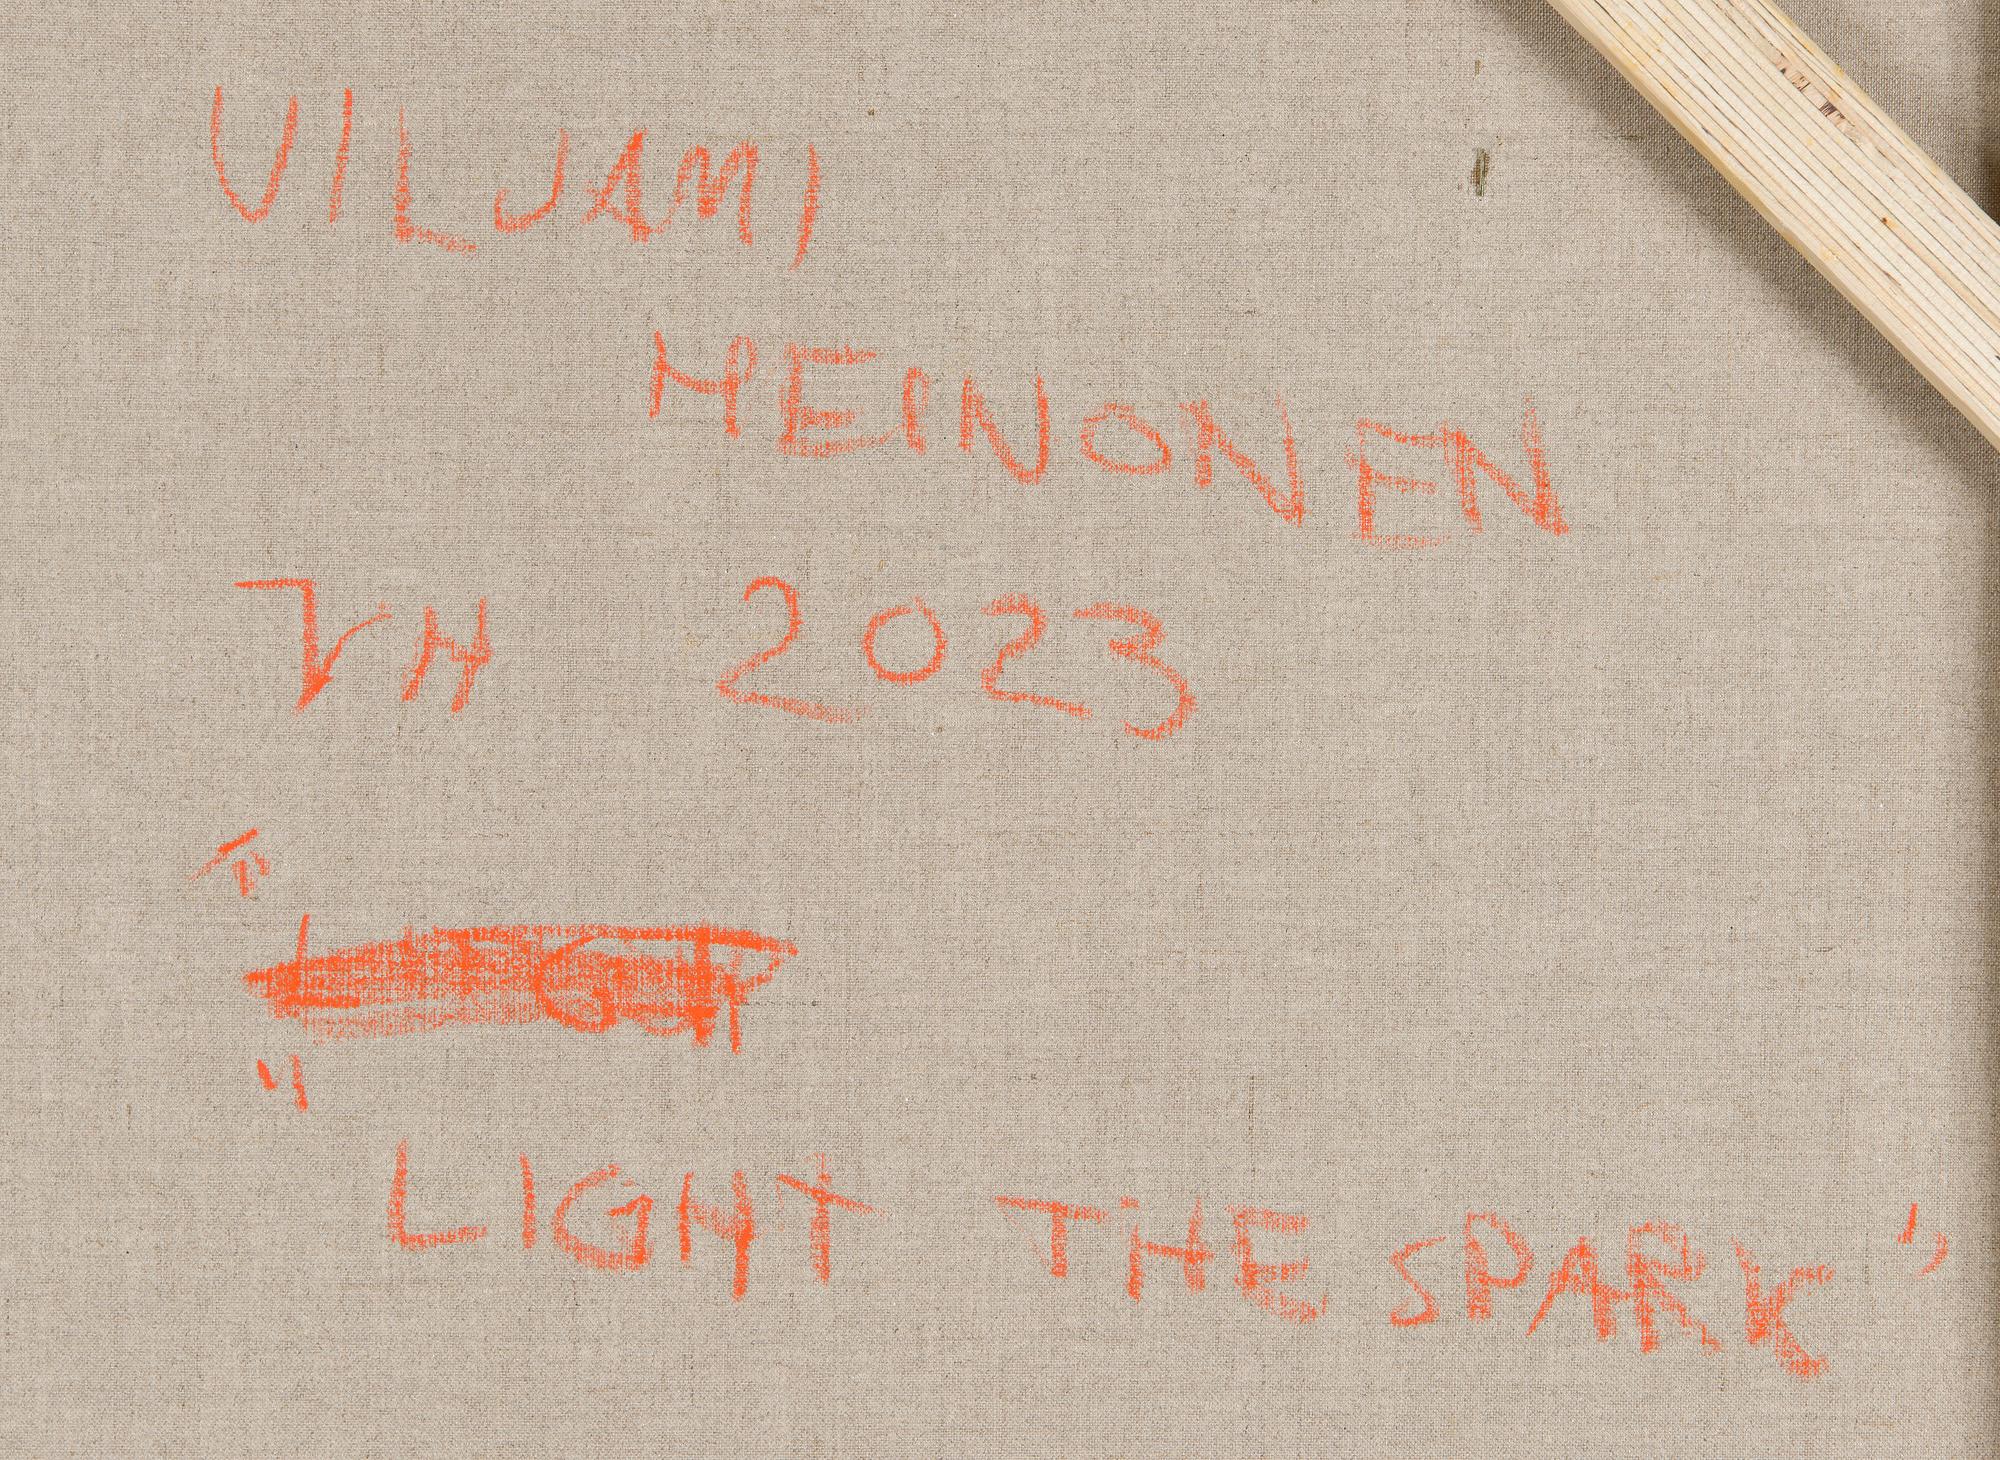 VILJAMI
HEINONEN
VH 2023
"
LIGHT THE SPARK"